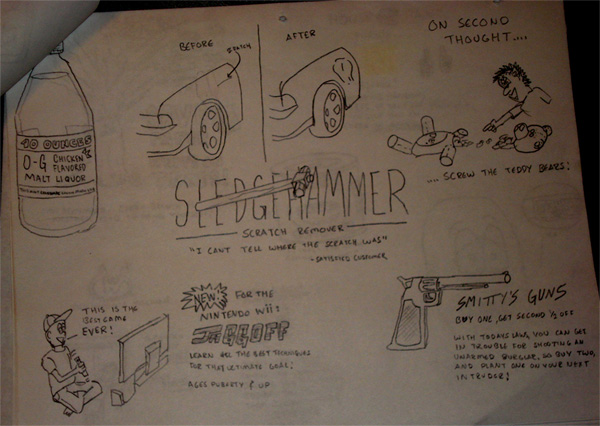 BEFORE
SCRATCH
AFTER
ON SECOND
THOUGHT....
40 OUNCES
O-G CHICKEN
FLAVORED
MALT LIQUOR
.... SCREW THE TEDDY BEARS!
SLEDGEHAMMER
SCRATCH REMOVER
"I CANT TELL WHERE THE SCRATCH WAS"
- SATISFIED CUSTOMER
THIS IS THE
BEST GAME
EVER!
NEW!
FOR THE
NINTENDO WII:
JAGGOFF
LEARN ALL THE BEST TECHNIQUES
FOR THAT ULTIMATE GOAL!
AGES PUBERTY & UP
SMITTY'S GUNS
BUY ONE, GET SECOND 1/2 OFF
WITH TODAYS LAWS, YOU CAN GET
IN TROUBLE FOR SHOOTING AN
UNARMED BURGLAR. SO BUY TWO,
AND PLANT ONE ON YOUR NEXT
INTRUDER!